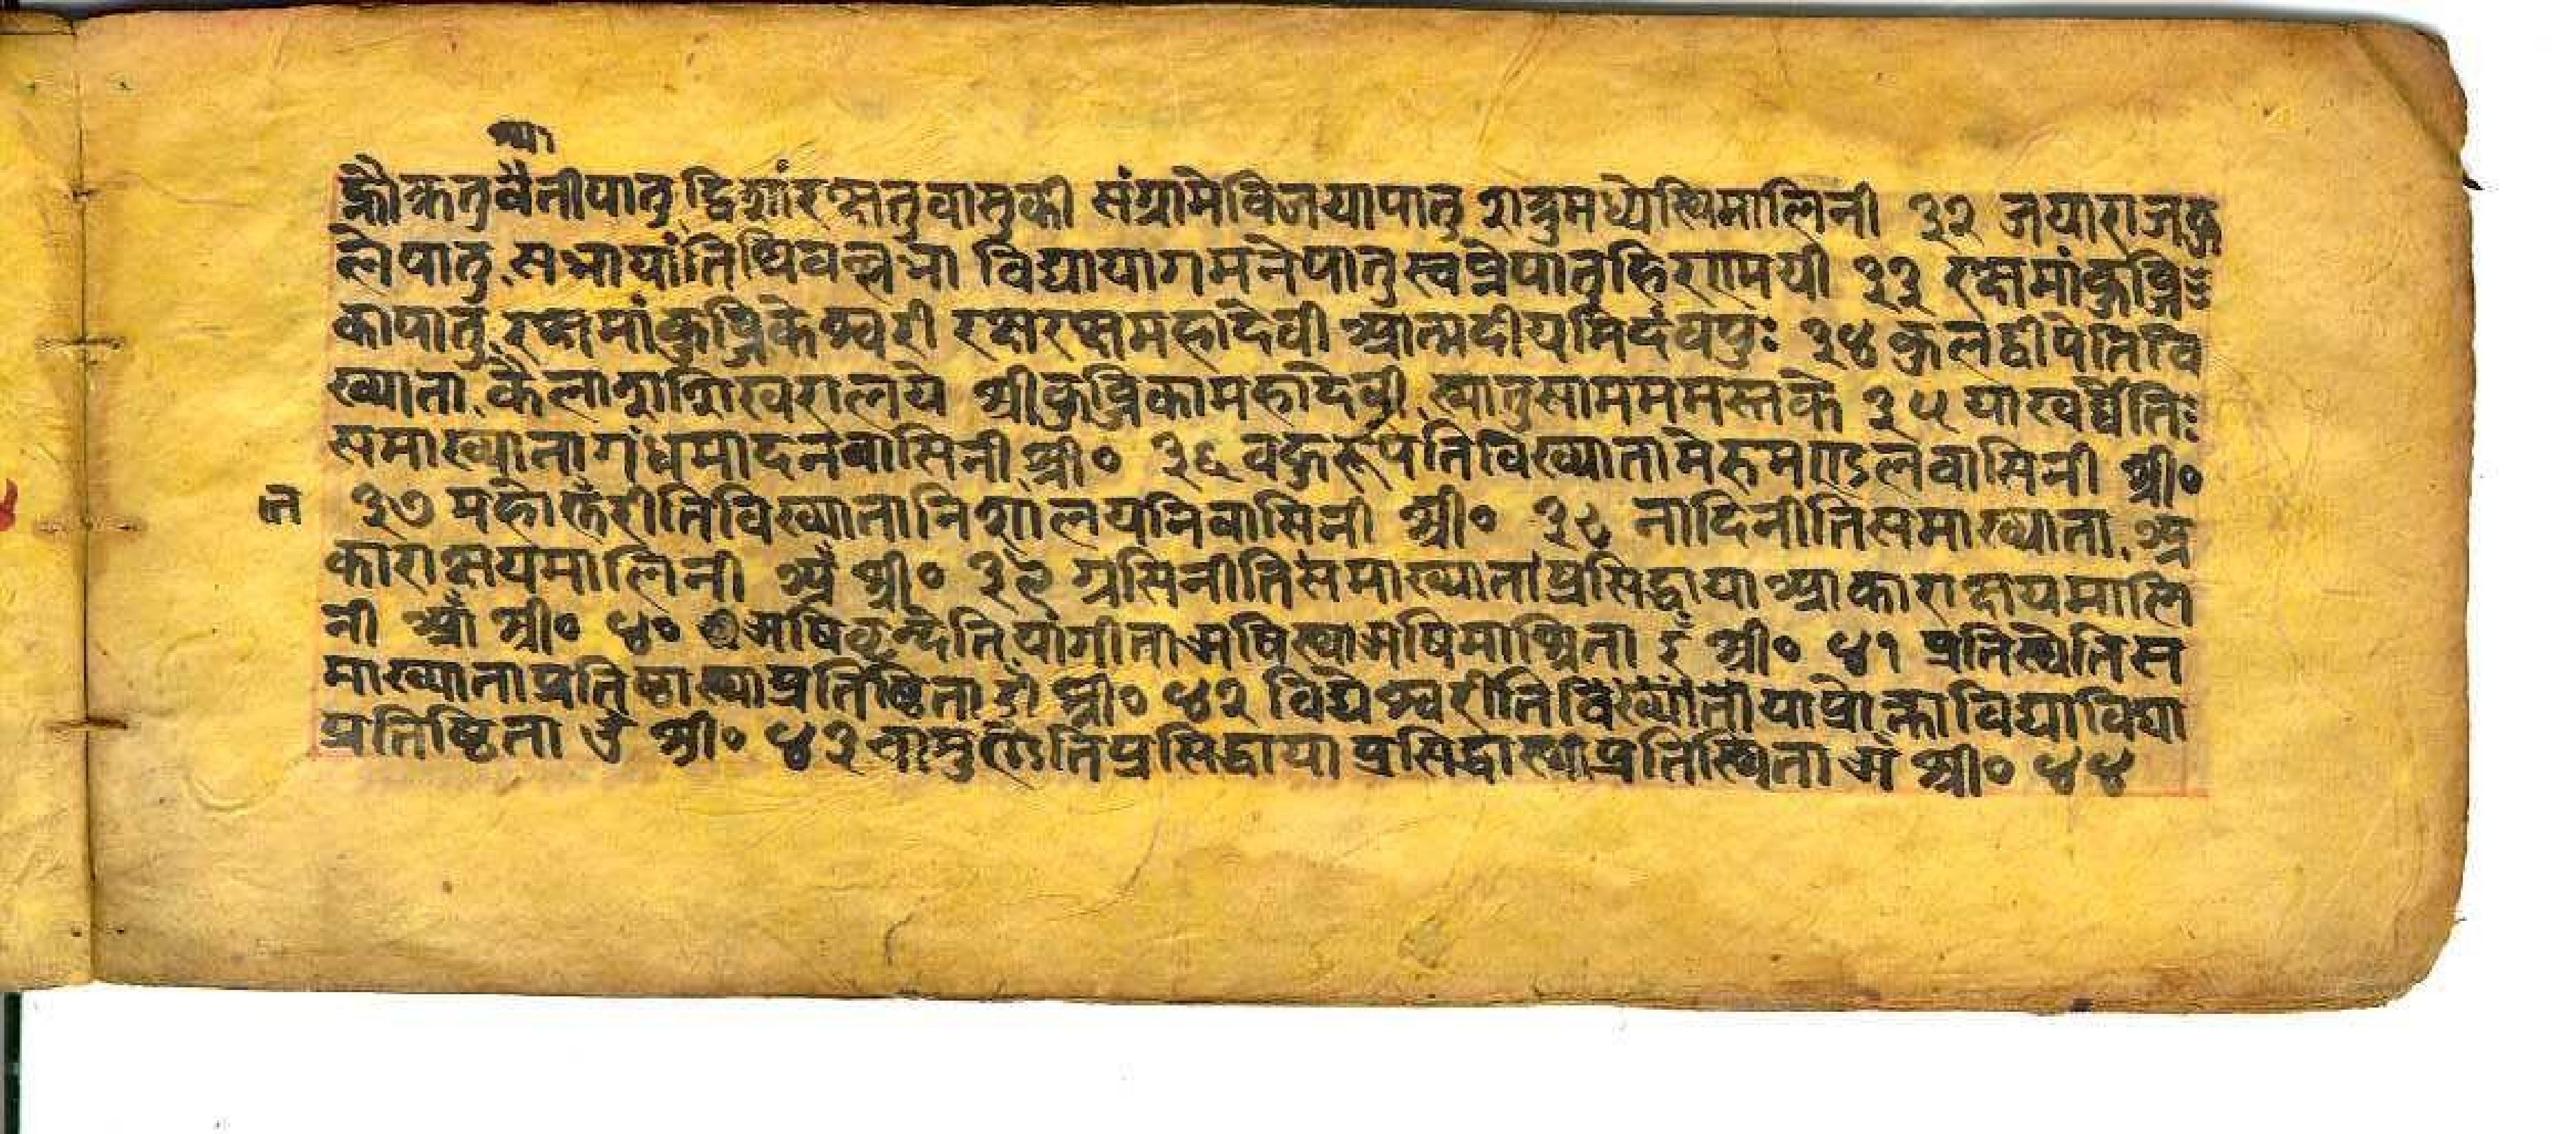 ख्या
क्रौक्रतुर्वैनीपातु द्विशांरक्षतुवासुकी संग्रामेविजयापातु शत्रुमध्येस्थिमालिनी ३२ जयाराजकु
लेपातु सभायांतिथिवल्लभा विद्यायागमनेपातु स्वप्नेपातुहिराामयी ३३ रक्षमांकुब्जि
कापातु रक्षमांकुब्जिकेश्वरी रक्षरक्षमहादेवी आत्मदीयमिदंवपुः ३४ कुलद्वीपेतिवि
ख्याता कैलाशशिखरालये श्रीकुब्जिकामहादेवी ख्यातुसामममस्तके ३५ या
समाख्यातागंधमादनवासिनी श्री० ३६ वक्रुरूपतिविख्यातामेरुमण्डलवासिनी श्री०
त ३७ तिविख्यातानिशालयनिवासिनी श्री० ३८ नादिनीतिसमाख्याता अ
काराक्षयमालिनी अँ श्री० ३९ ग्रसिनीतिसमाख्याताप्रसिद्धायाआकाराक्षयमालि
नी आँ श्री० ४० श्री० ४१ प्रतिस्थेतिस
माख्याताप्रतिष्ठाख्याप्रतिष्ठिता श्री० ४२ विद्येश्वरीतिविख्यातायाप्रोक्ताविद्याविद्या
प्रतिष्ठिता उँ श्री० ४३ चामुण्डेतिप्रसिद्धाया प्रसिद्धाख्याप्रतिस्थिता श्री० ४४